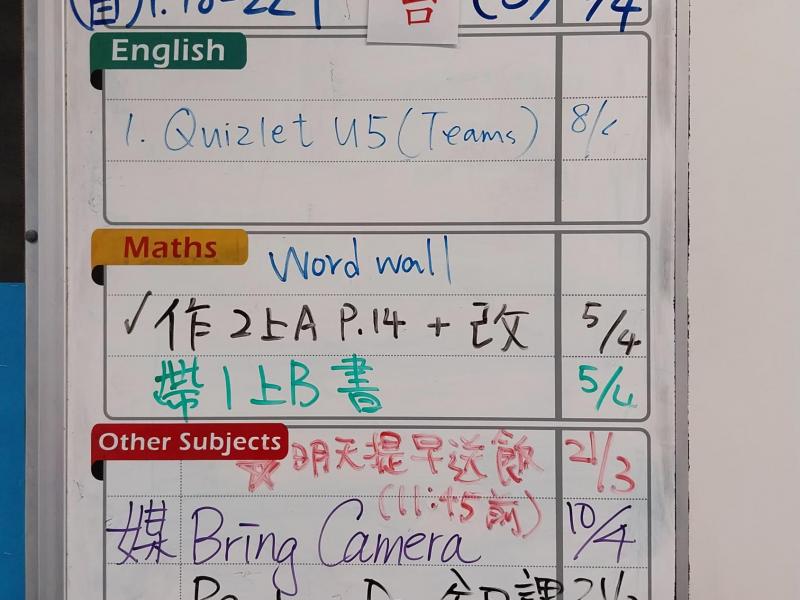 (自) 1. 18-22 (C) /4
English
1. Quizlet U5 (Teams) 8/4
Maths
Word wall
✓作 2上A P.14 + 改 5/4
帶 1上B 書 5/4
Other Subjects
☆明天提早送飯 21/3
(11:45前)
媒 Bring Camera 10/4